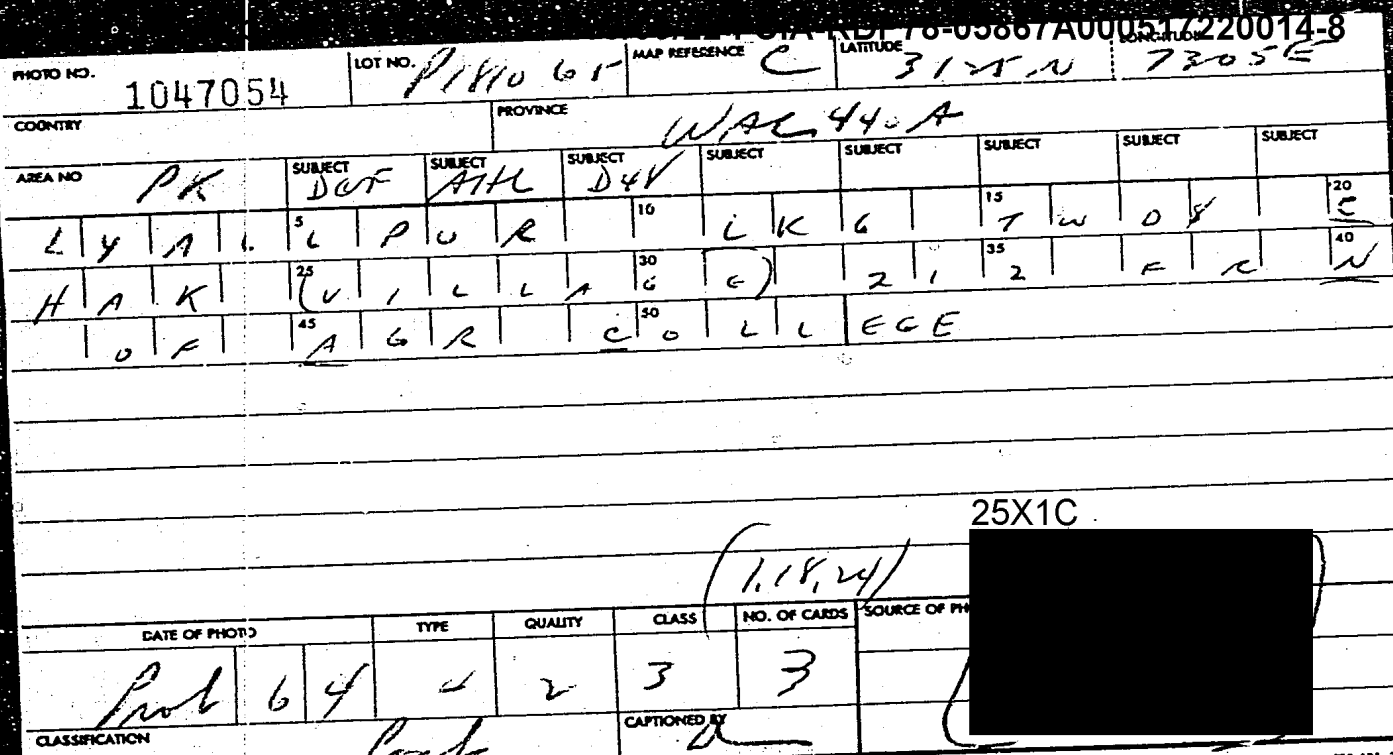 CIA-RDP78-05867A000517220014-8
PHOTO NO. 1047054 LOT NO. P1810 65 MAP REFERENCE C LATITUDE 3125N LONGITUDE 7305E
COUNTRY PROVINCE WAC 440A
AREA NO PK SUBJECT SUBJECT SUBJECT D4V SUBJECT SUBJECT SUBJECT SUBJECT SUBJECT
LYALLPUR 5 10 15 20
HAK (VILLAGE) 212 25 30 35 40
OF AGR COLLEGE 45 50
25X1C
(1,18,24)
DATE OF PHOTO TYPE QUALITY CLASS NO. OF CARDS SOURCE OF PH
Prob 64 2 3 3
CLASSIFICATION CAPTIONED BY